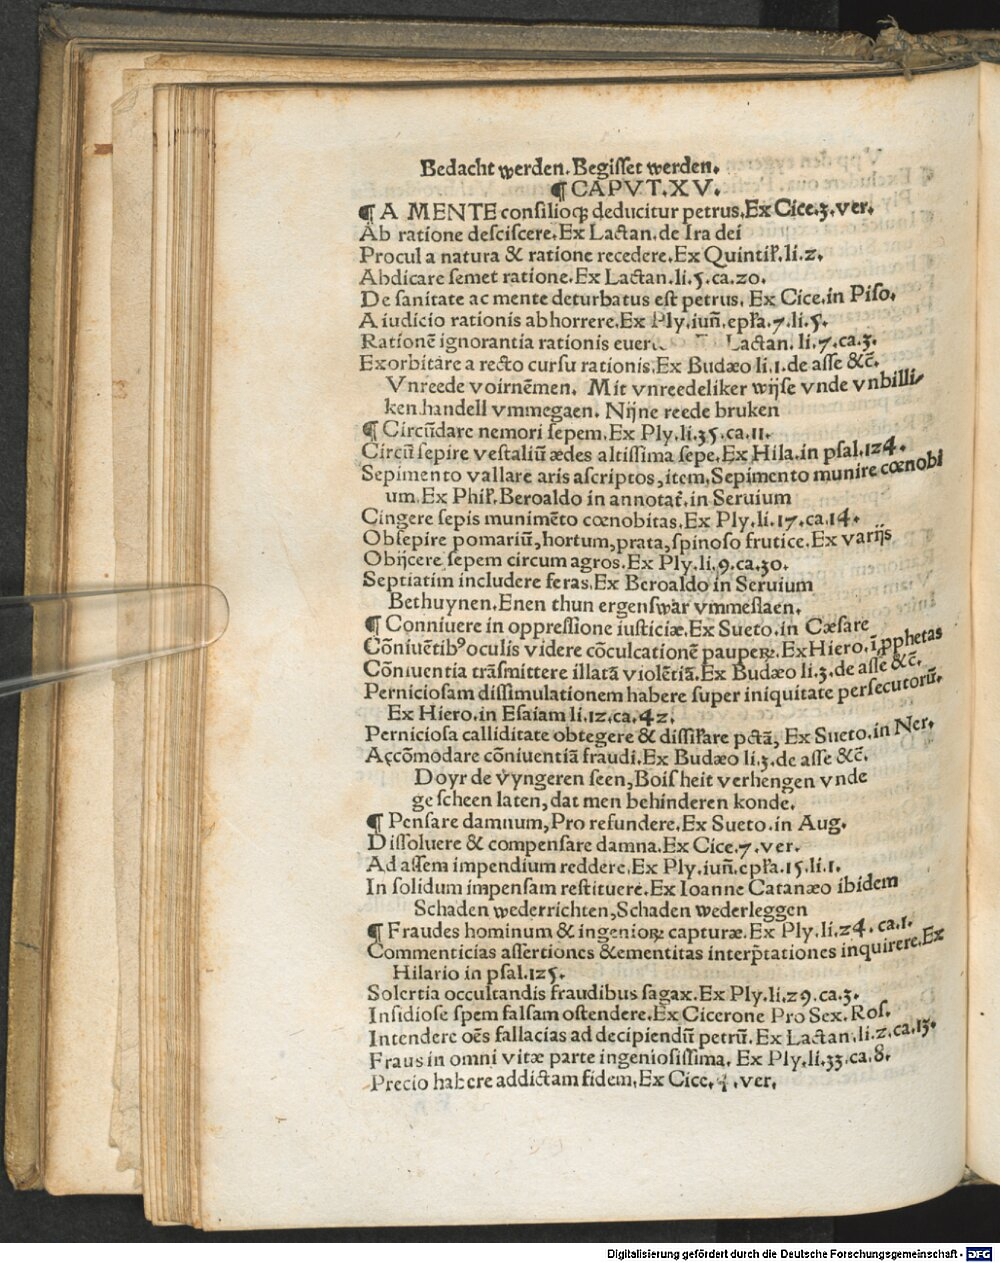 Bedacht werden. Begisset werden.
¶ CAPVT. XV.
¶ A MENTE consilioq́; deducitur petrus. Ex Cice. 3. ver.
Ab ratione desciscere. Ex Lactan. de Ira dei
Procul a natura & ratione recedere. Ex Quintil̛. li. 2.
Abdicare semet ratione. Ex Lactan. li. 5. ca. 20.
De sanitate ac mente deturbatus est petrus. Ex Cice. in Piso.
A iudicio rationis abhorrere. Ex Ply. iun̄. epl̛a. 7. li. 5.
Rationē ignorantia rationis Lactan. li. 7. ca. 3.
Exorbitare a recto cursu rationis. Ex Budæo li. 1. de asse &c̄.
Vnreede voirnēmen. Mit vnreedeliker wijse vnde vnbilli⸗
ken handell vmmegaen. Nijne reede bruken
¶ Circūdare nemori sepem. Ex Ply. li. 35. ca. 11.
Circū sepire vestaliū ædes altissima sepe. Ex Hila. in psal. 124.
Sepimento vallare aris ascriptos, item, Sepimento munire cœnobi
um. Ex Phil̛. Beroaldo in annotat̄. in Seruium
Cingere sepis munimēto cœnobitas. Ex Ply. li. 17. ca. 14.
Obsepire pomariū, hortum, prata, spinoso frutice. Ex varijs
Obijcere sepem circum agros. Ex Ply. li. 9. ca. 30.
Septiatim includere feras. Ex Beroaldo in Seruium
Bethuynen. Enen thun ergenswar vmmeslaen.
¶ Conniuere in oppressione iusticiæ. Ex Sueto. in Cæsare
Cōniuētibꝰ oculis videre cōculcationē pauperꝝ. Ex Hiero. ī ꝓphetas
Cōniuentia trāsmittere illatā violētiā. Ex Budæo li. 3. de asse &c̄.
Perniciosam dissimulationem habere super iniquitate persecutorū.
Ex Hiero. in Esaiam li. 12. ca. 42.
Perniciosa calliditate obtegere & dissil̛are pctā, Ex Sueto. in Ner.
Accōmodare cōniuentiā fraudi. Ex Budæo li. 3. de asse &c̄.
Doyr de vyngeren seen, Boisheit verhengen vnde
gescheen laten, dat men behinderen konde.
¶ Pensare damnum, Pro refundere. Ex Sueto. in Aug.
Dissoluere & compensare damna. Ex Cice. 7. ver.
Ad assem impendium reddere. Ex Ply. iun̄. epl̛a. 15. li. 1.
In solidum impensam restituere. Ex Ioanne Catanæo ibidem
Schaden wederrichten, Schaden wederleggen
¶ Fraudes hominum & ingeniorꝝ capturæ. Ex Ply. li. 24. ca. 1.
Commenticias assertiones & ementitas interp̄tationes inquirere. Ex
Hilario in psal. 125.
Solertia occultandis fraudibus sagax. Ex Ply. li. 29. ca. 3.
Insidiose spem falsam ostendere. Ex Cicerone Pro Sex. Ros.
Intendere oēs fallacias ad decipiendū petrū. Ex Lactan. li. 2. ca. 15.
Fraus in omni vitæ parte ingeniosissima. Ex Ply. li. 33. ca. 8.
Precio habere addictam fidem. Ex Cice. ver.
Digitalisierung gefördert durch die Deutsche Forschungsgemeinschaft - DFG